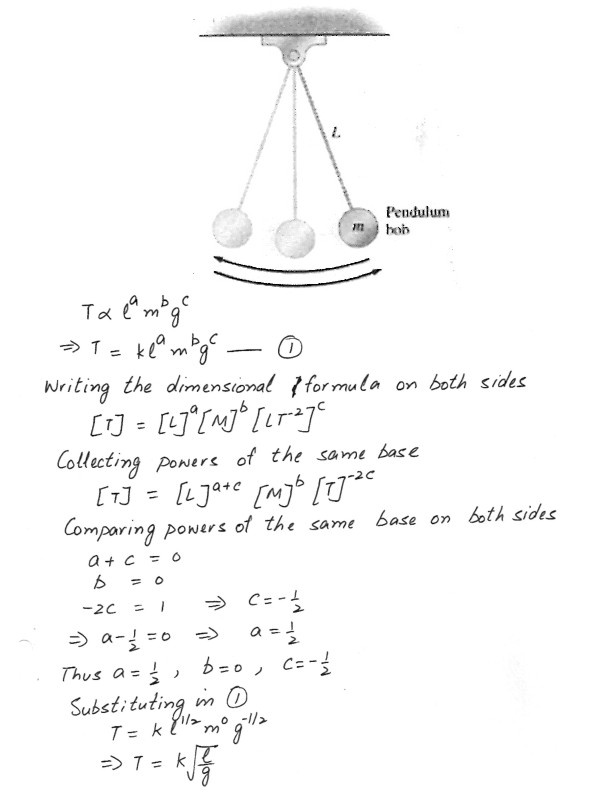 L
Pendulum
m bob
T ∝ l^a m^b g^c
⇒ T = k l^a m^b g^c — ①
Writing the dimensional formula on both sides
[T] = [L]^a [M]^b [LT^-2]^c
Collecting powers of the same base
[T] = [L]^a+c [M]^b [T]^-2c
Comparing powers of the same base on both sides
a + c = 0
b = 0
-2c = 1 ⇒ c = -1/2
⇒ a - 1/2 = 0 ⇒ a = 1/2
Thus a = 1/2 , b = 0 , c = -1/2
Substituting in ①
T = k l^1/2 m^0 g^-1/2
⇒ T = k √(l/g)